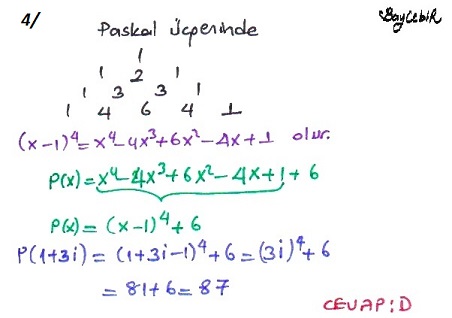 4/ Paskal Üçgeninde BayCebiR
1
1 2 1
1 3 3 1
1 4 6 4 1
(x-1)⁴=x⁴-4x³+6x²-4x+1 olur.
P(x)=x⁴-4x³+6x²-4x+1+6
P(x)=(x-1)⁴+6
P(1+3i)=(1+3i-1)⁴+6=(3i)⁴+6
=81+6=87
CEVAP:D